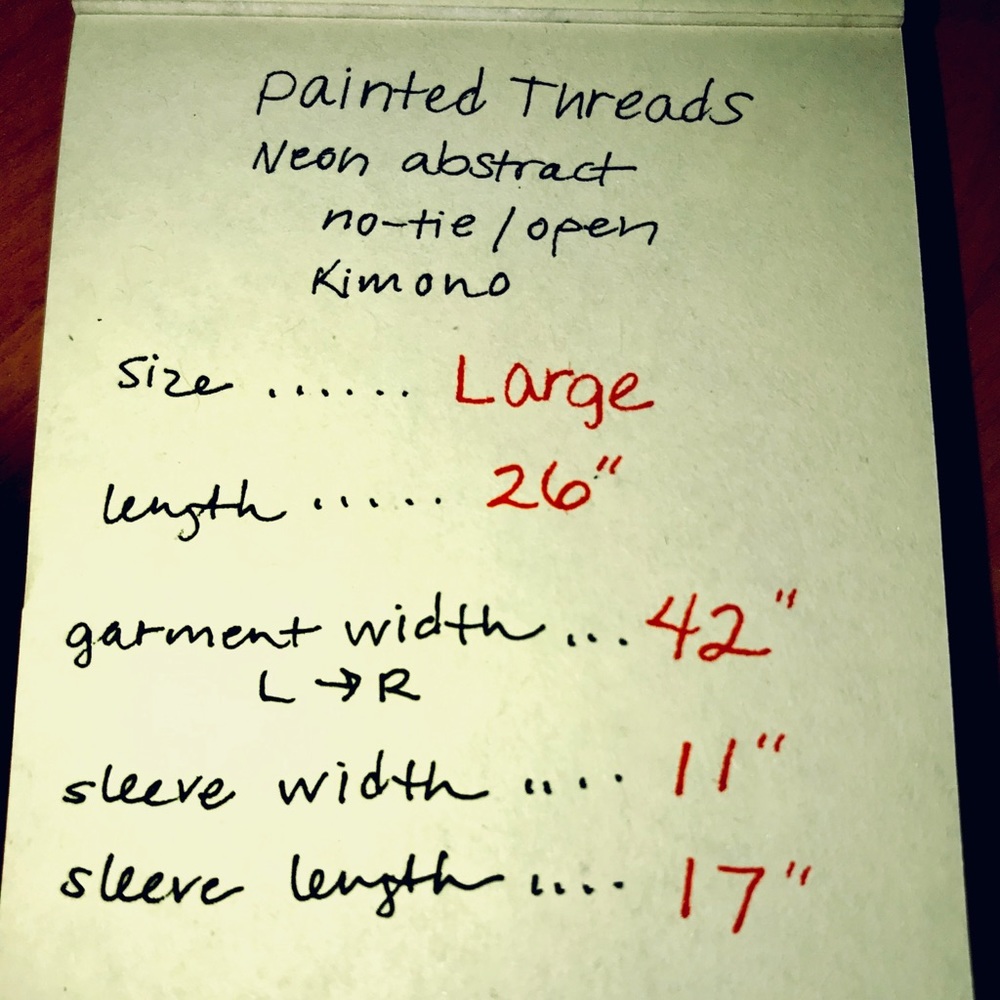 Painted Threads
Neon abstract
no-tie / open
Kimono
size ...... Large
length ..... 26"
garment width ... 42"
L → R
sleeve width .... 11"
sleeve length .... 17"